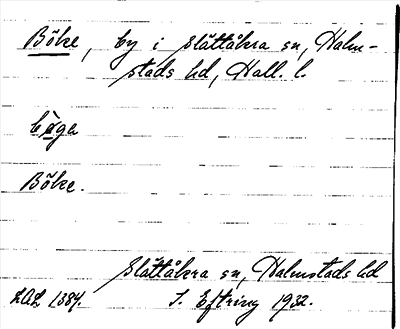 Böke, by i Slättåkra sn, Halm-
stads hd, Hall. l.
bøga
Böke.
Slättåkra sn, Halmstads hd
LAL 1384. S. Eftring 1932.